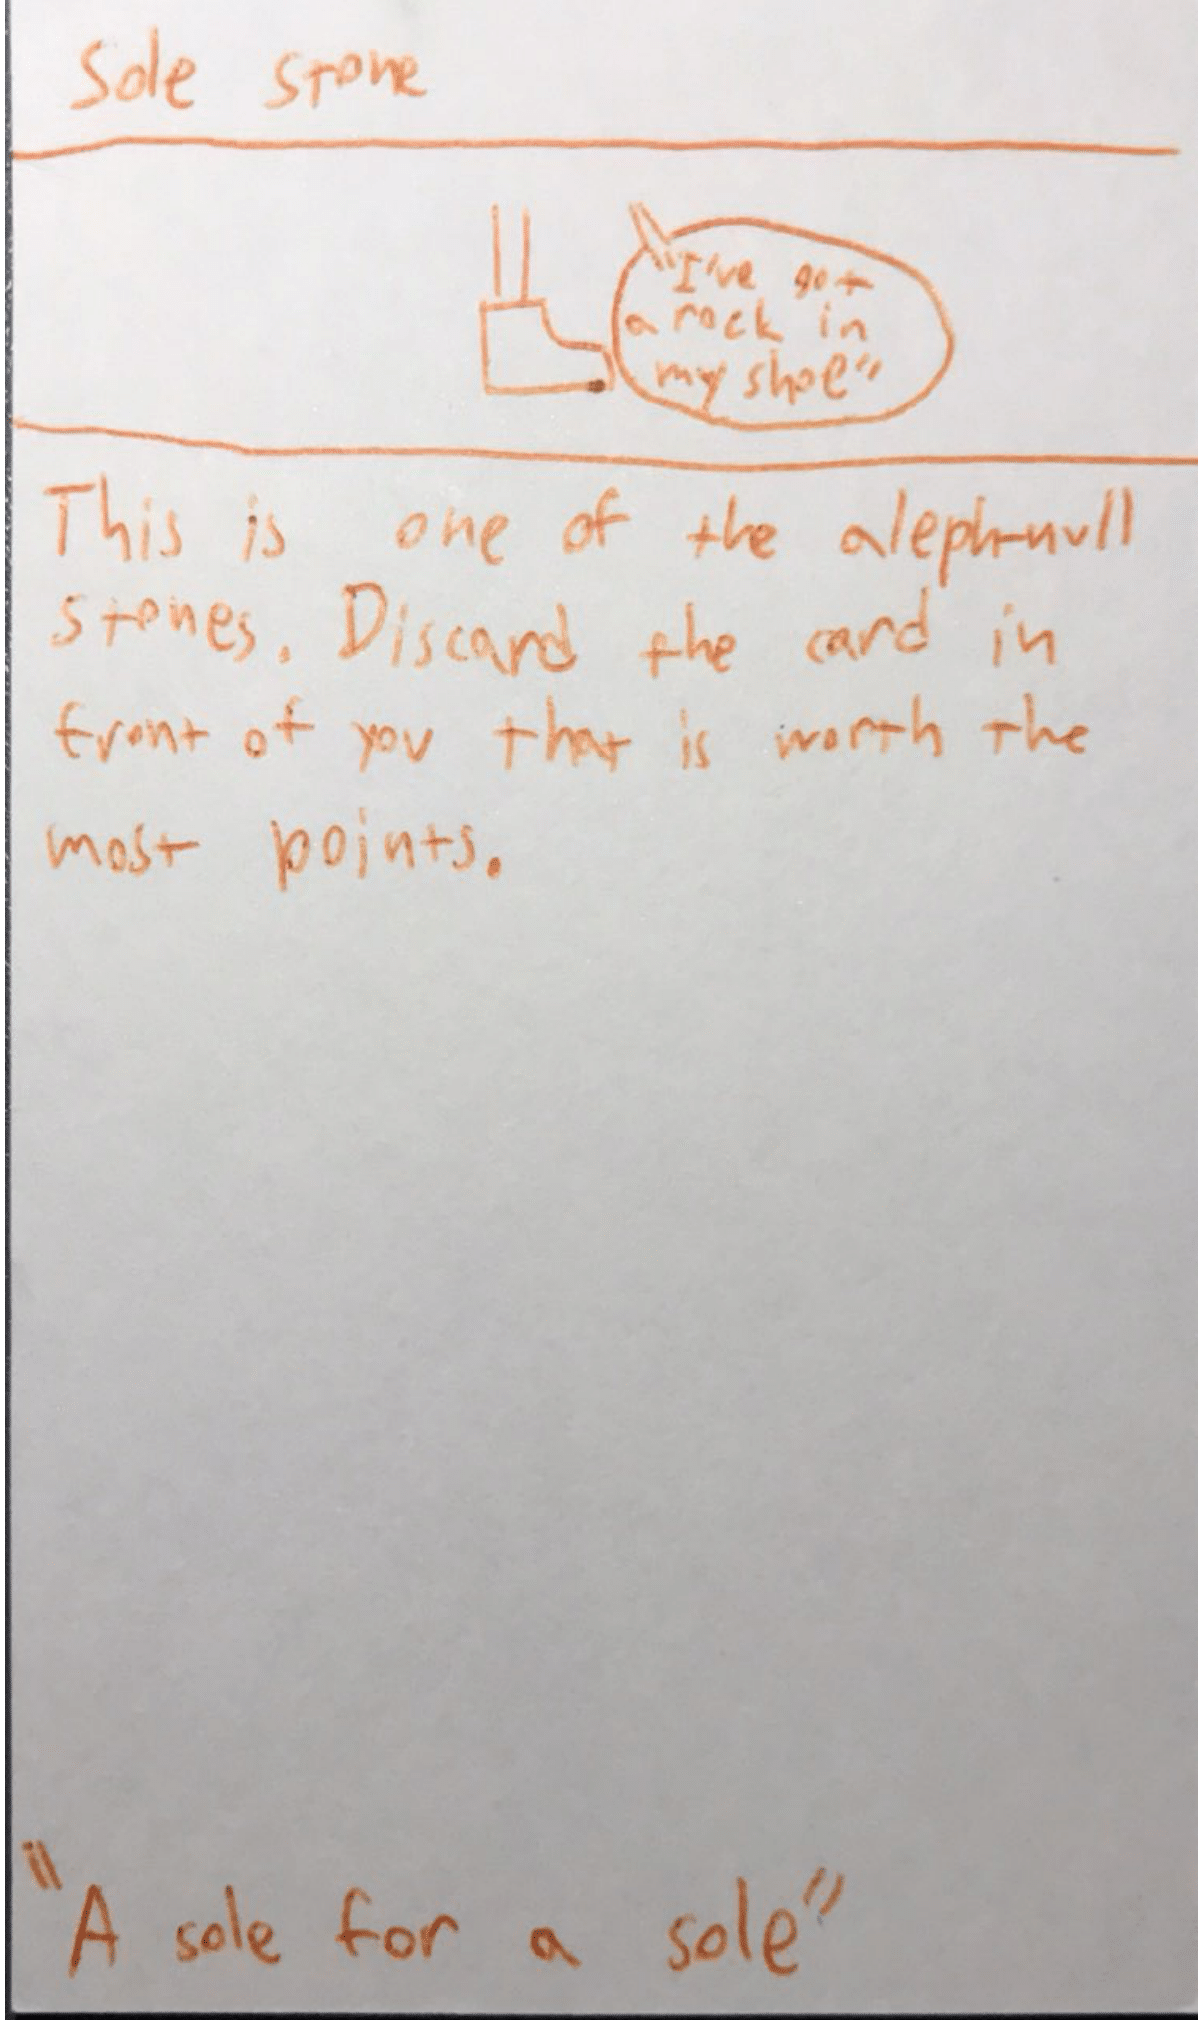 Sole stone
"I've got
a rock in
my shoe"
This is one of the aleph-null
stones. Discard the card in
front of you that is worth the
most points.
"A sole for a sole"